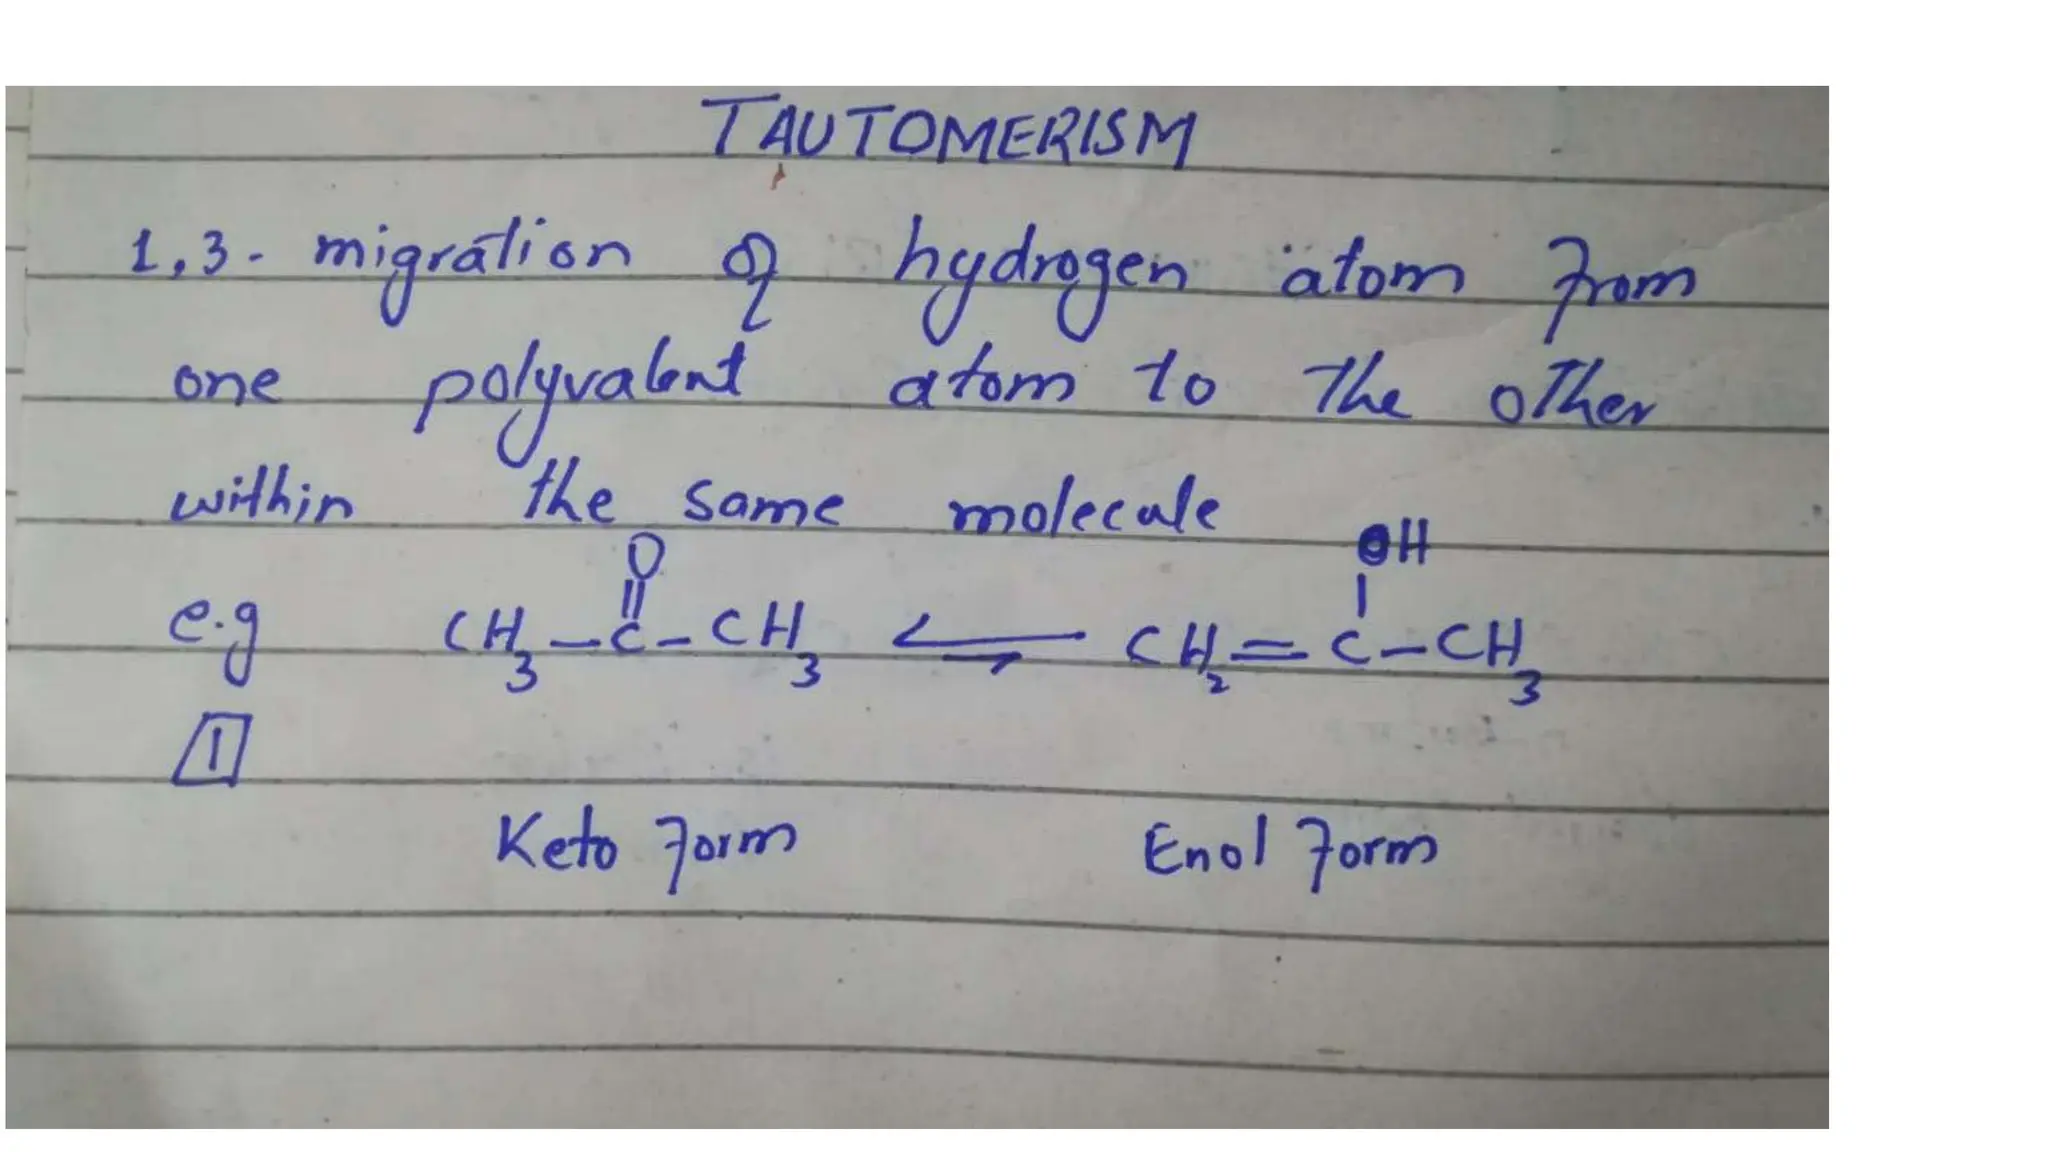 TAUTOMERISM
1,3- migration of hydrogen atom from
one polyvalent atom to the other
within the same molecule
O OH
e.g CH3 – C – CH3 ⇌ CH2 = C – CH3
1
Keto form Enol form